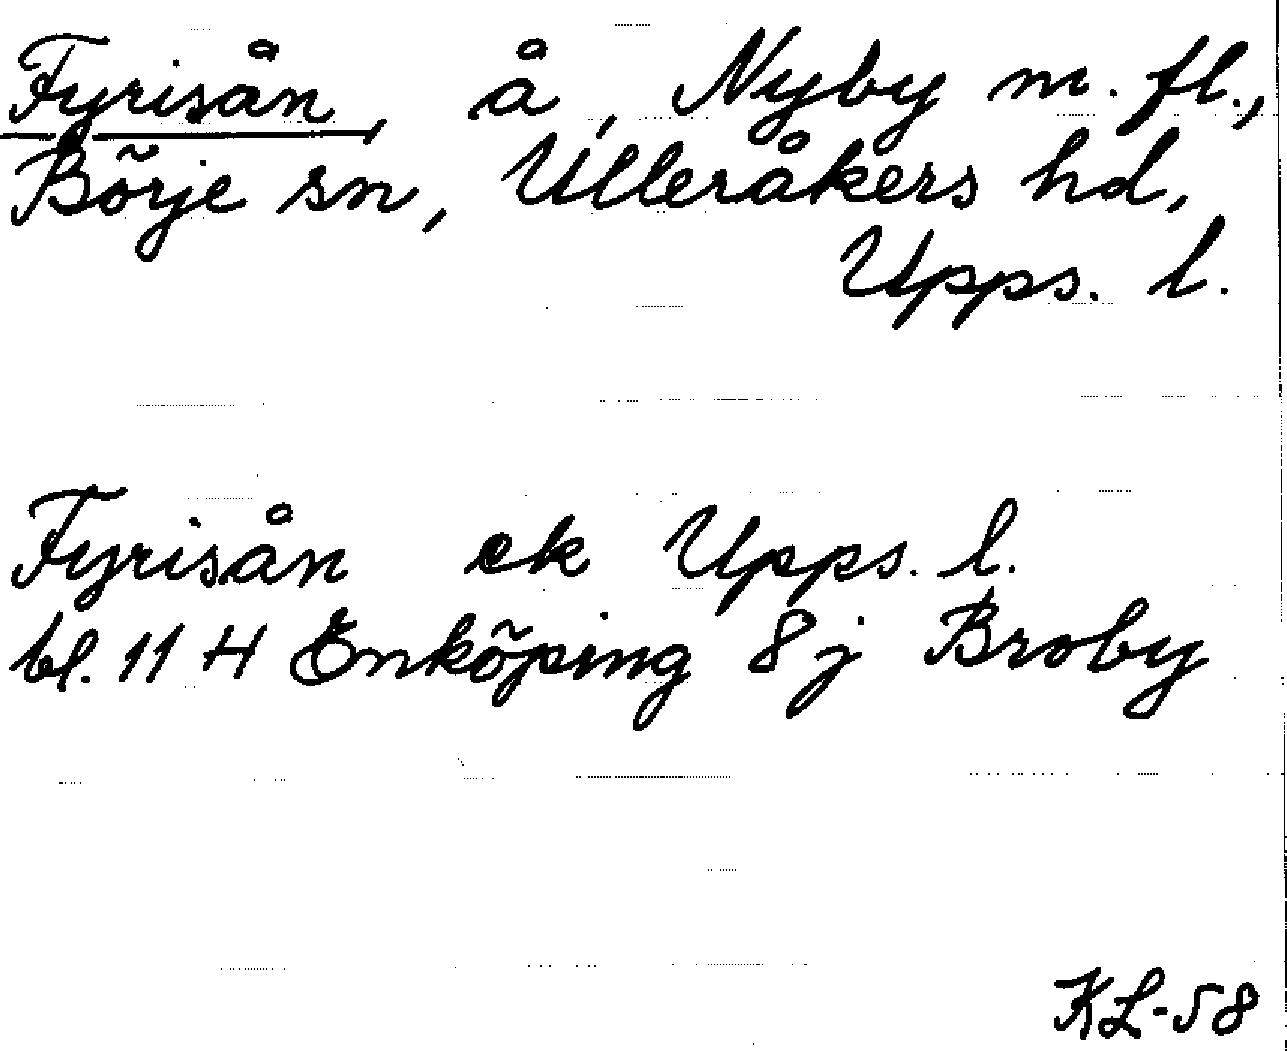 Fyrisån, å, Nyby m. fl.,
Börje sn, Ulleråkers hd,
Upps. l.
Fyrisån ek Upps. l.
bl. 11 H Enköping 8j Broby
KL-58